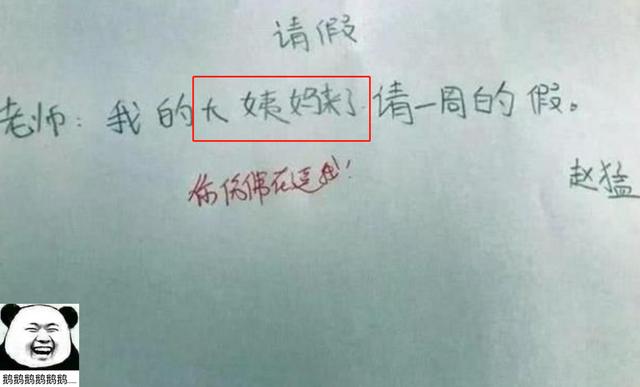 请假
老师：我的大姨妈来了.请一周的假。
你仿佛在逗我！
赵猛
鹅鹅鹅鹅鹅鹅....